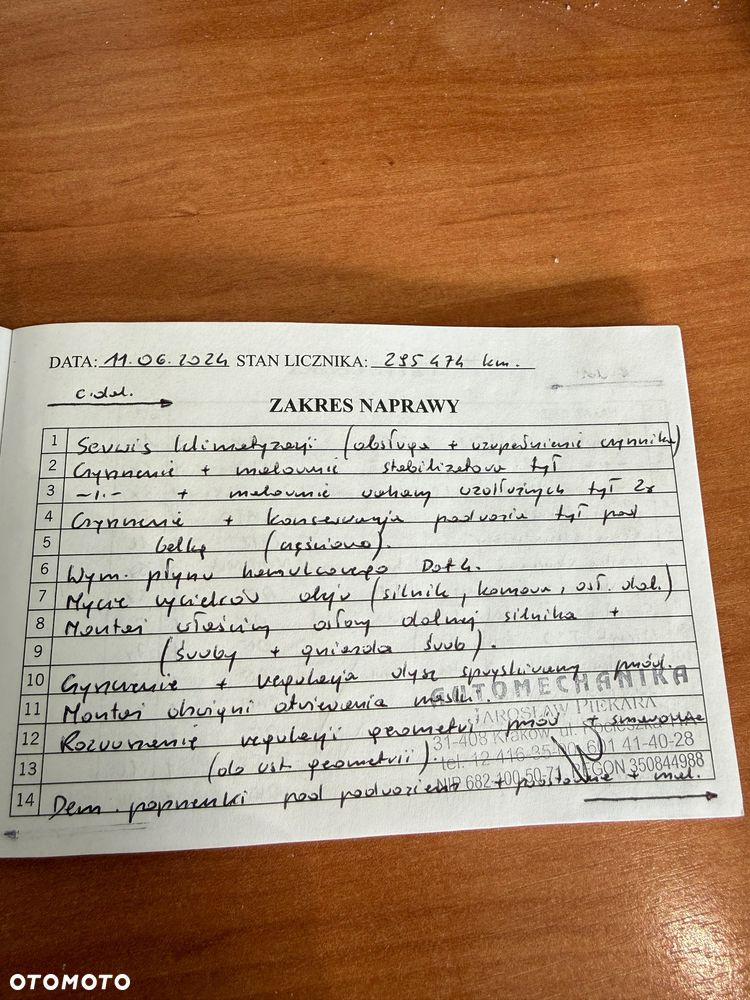 DATA: 11.06.2024 STAN LICZNIKA: 295 474 km.
c.dal.
ZAKRES NAPRAWY
1 Serwis klimatyzacji (obsługa + uzupełnienie czynnika)
2 Czyszczenie + malowanie stabilizatora tył
3 -ı.- + malowanie wahaczy wzdłużnych tył 2x
4 Czyszczenie + konserwacja podwozia tył pod
5 belkę (częściowo).
6 Wym. płynu hamulcowego Dot 4.
7 Mycie wycieków oleju (silnik, komora, osł. dol.)
8 Montaż osłony dolnej silnika +
9 (śruby + gniazda śrub).
10 Czyszczenie + regulacja dysz spryskiwaczy przód.
11 Montaż dźwigni otwierania maski
AUTOMECHANIKA
JAROSŁAW PIEKARA
12 Rozruszenie regulacji geometrii przód + smarowanie
31-408 Kraków, ul.
13 (do ust. geometrii)
tel. 12 416-35-00, 601 41-40-28
NIP 682-100-50-71 REGON 350844988
14 Dem. poprzeczki pod podwoziem + prostowanie + mal.
OTOMOTO